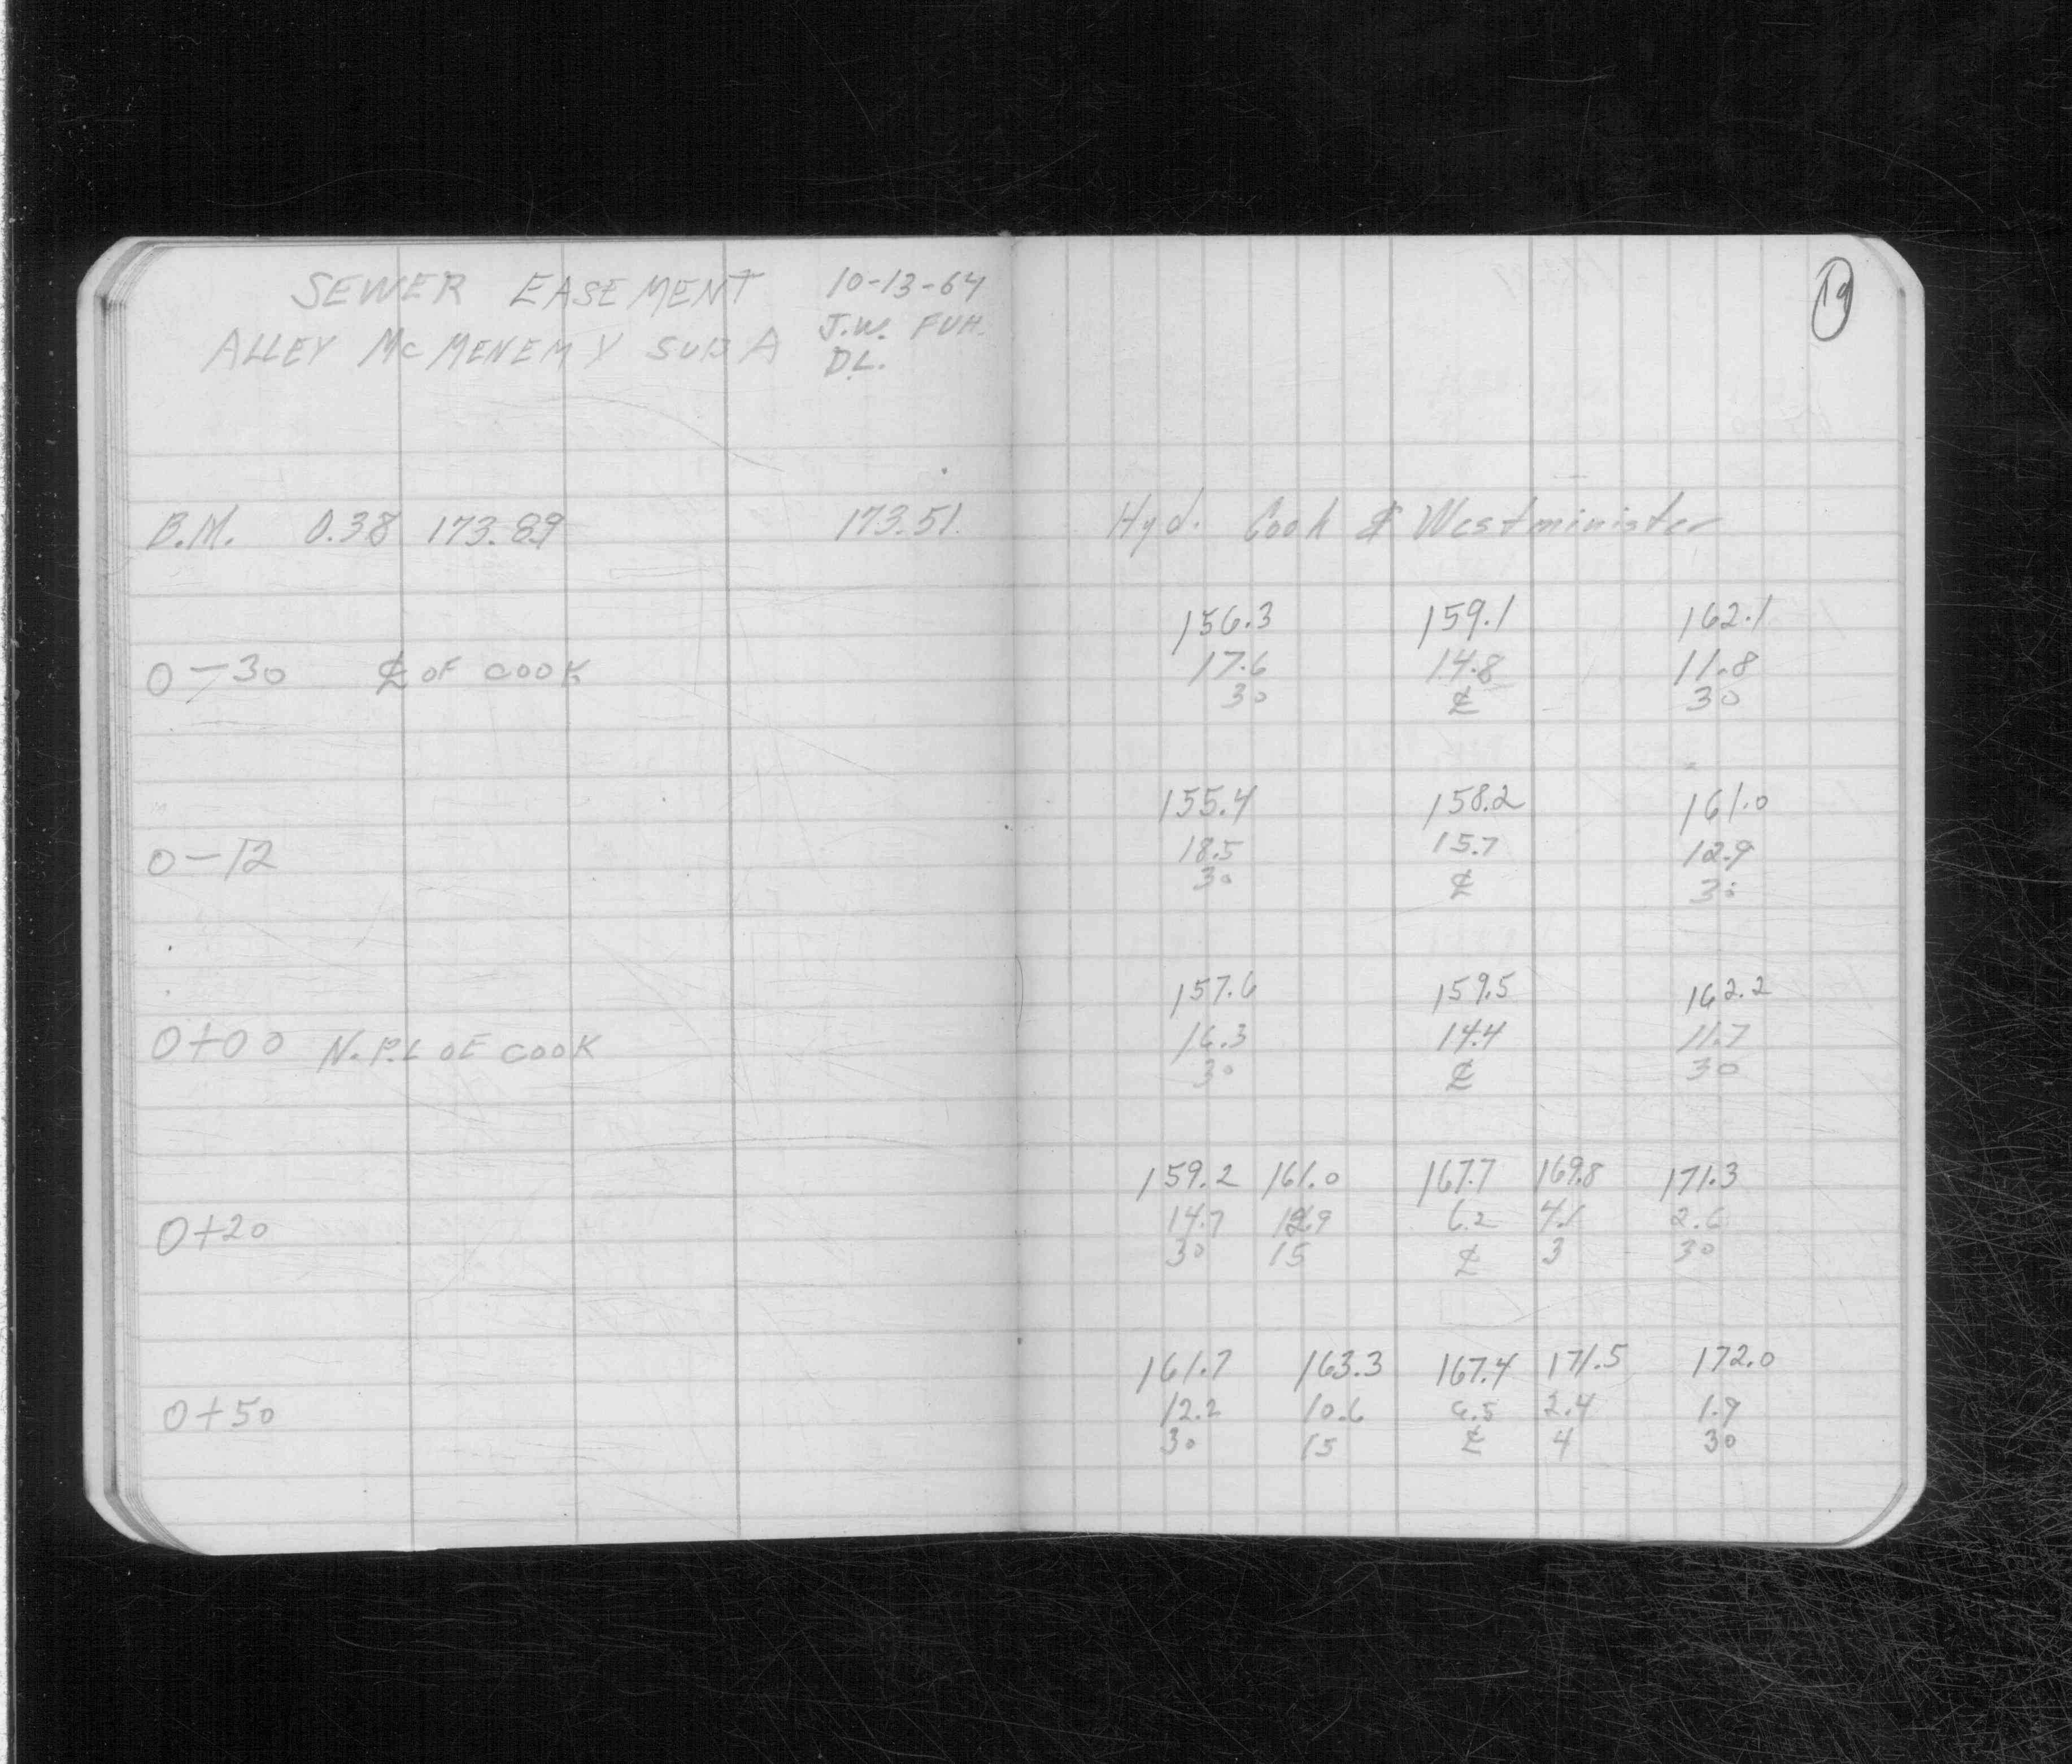 SEWER EASEMENT 10-13-64
ALLEY McMENEMY SUB A J.W. FUH.
D.L.
B.M. 0.38 173.89 173.51
0-30 ℄ OF COOK
0-12
0+00 N.P.L OF COOK
0+20
0+50
19
Hyd. Cook & Westminister
156.3 159.1 162.1
17.6 14.8 11.8
30 ℄ 30
155.4 158.2 161.0
18.5 15.7 12.9
30 ℄ 30
157.6 159.5 162.2
16.3 14.4 11.7
30 ℄ 30
159.2 161.0 167.7 169.8 171.3
14.7 12.9 6.2 4.1 2.6
30 15 ℄ 3 30
161.7 163.3 167.4 171.5 172.0
12.2 10.6 6.5 2.4 1.9
30 15 ℄ 4 30